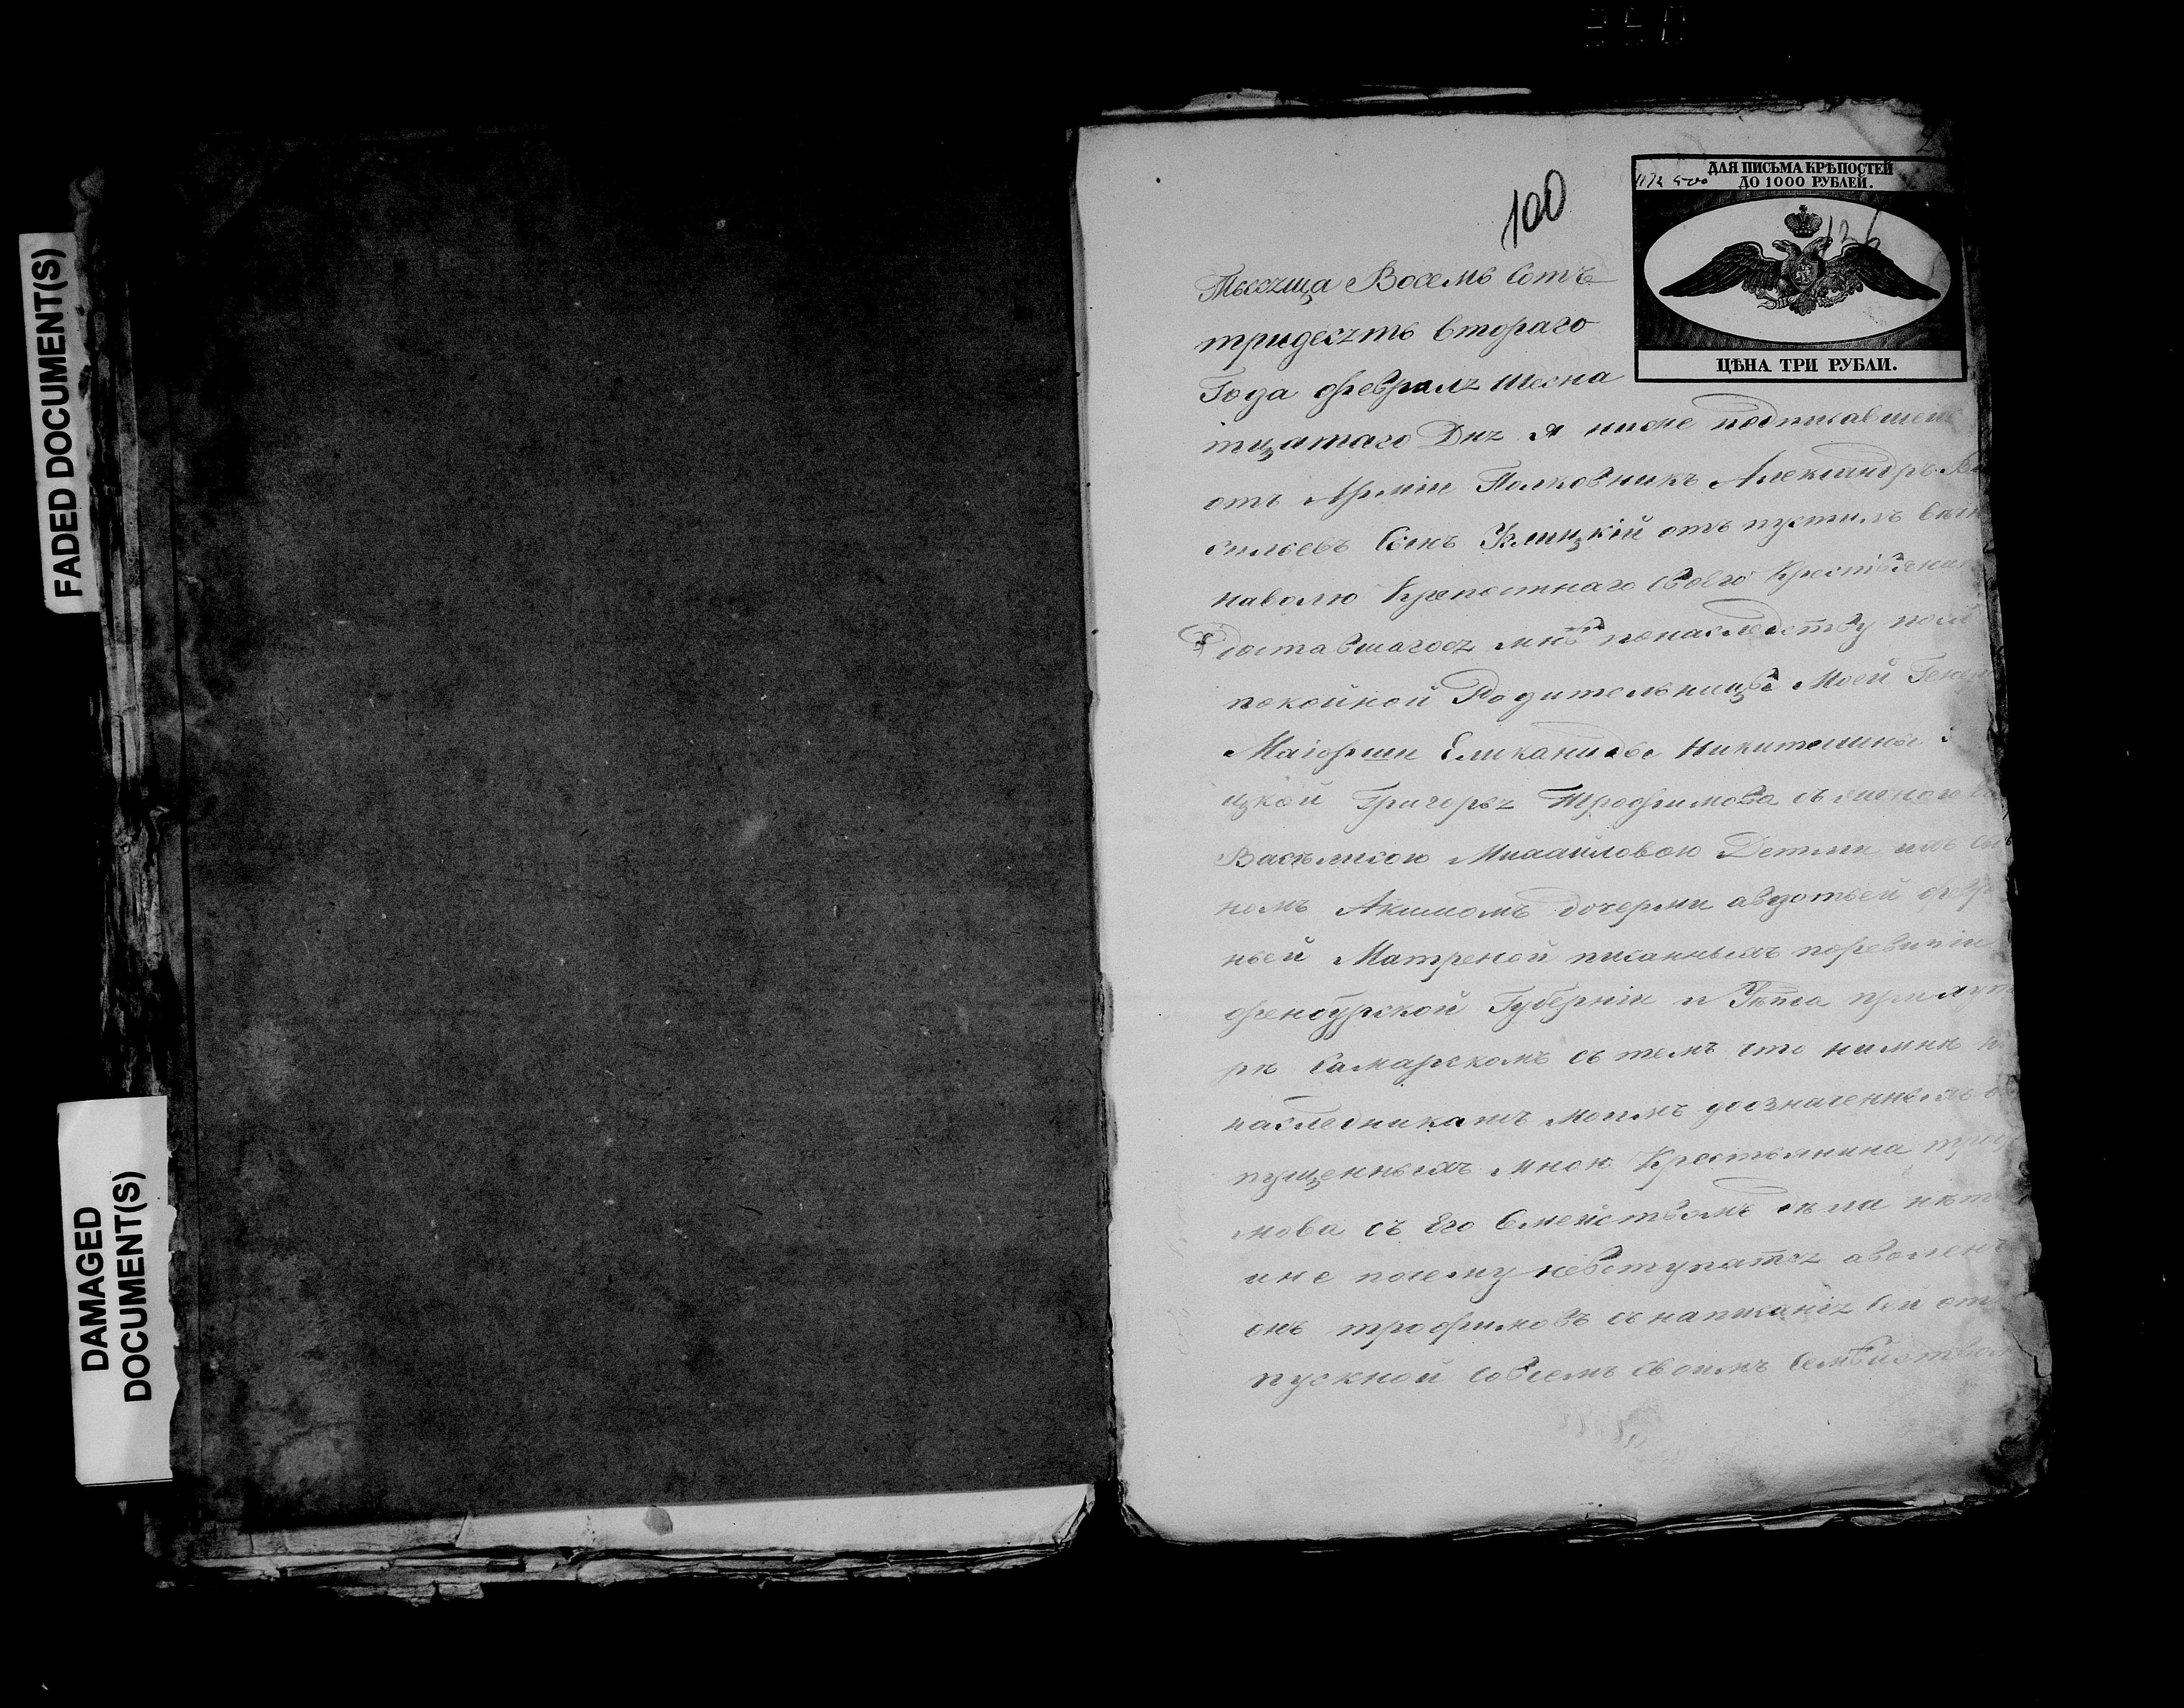 FADED DOCUMENT(S)
DAMAGED
DOCUMENT(S)
100
ДЛЯ ПИСЬМА КРѢПОСТЕЙ
ДО 1000 РУБЛЕЙ.
136
ЦѢНА ТРИ РУБЛИ.
Тысяща Восемь Сотъ
тридесять втораго
Года февраля шесна
тцатаго Дня я ниже подписавшей
отъ Арміи Полковникъ Александръ Ва
сильевъ Сынъ отъ пустилъ вечн
наволю Крепостнаго своего Крестьянин
доставшагося мнѣ понаследству посл
покойной Родительницы Моей Генер
Маіорши Никитешны
цкой Григорья Трофимова съ женою
Васълисою Михайловою Детми ихъ сы
номъ Акимомъ дочерми авдотьей
ньей Матреной писанныхъ поревизіи
оренбургской Губерніи и Уѣзда при
рѣ Самарскомъ съ темъ что нимнѣ
наследникамъ моимъ доозначеннымъ
пущенныхъ мною Крестьянина троф
мова съ Его Смействомъ дѣла нѣт
ине почему невступатся аволенъ
онъ трофимовъ съ написанія сей от
пускной совсемъ своимъ Семѣйством